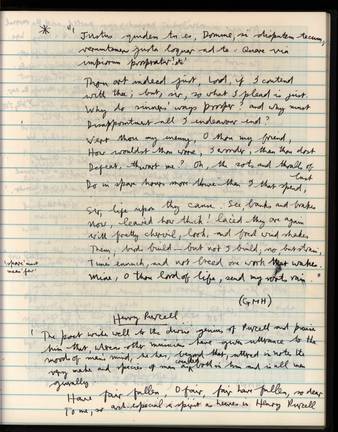 * "Justus quidem tu es, Domine, si disputem tecum;
verumtamen justa loquar ad te: Quare via
impiorum prosperatur? &c
Thou art indeed just, Lord, if I contend
with thee; but, sir, so what I plead is just.
Why do sinners' ways prosper? and why must
Disappointment all I endeavour end?
Wert thou my enemy, O thou my friend,
How wouldst thou worse, I wonder, than thou dost
Defeat, thwart me? Oh, the sots and thralls of
lust
Do in spare hours more thrive than I that spend,
Sir, life upon thy cause. See, banks and brakes
Now, leaved how thick! laced they are again
With fretty chervil, look, and fresh wind shakes
Them; birds build – but not I build; no, but strain,
Time's eunuch, and not breed one work that wakes.
Mine, O thou lord of life, send my roots rain."
(GMH)
Henry Purcell
'The poet wishes well to the divine genius of Purcell and praises
him that whereas other musicians have given utterance to the
moods of man's mind, he has, beyond that, uttered in notes the
very make and species of man as created both in him and in all men
generally
Have fair fallen, O fair, fair have fallen, so dear
To me, so arch-especial a spirit as heaves in Henry Purcell